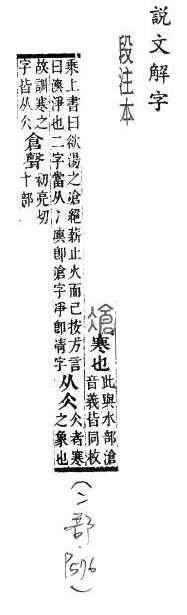 說文解字
段注本
凔
寒也
此與水部滄
音義皆同枚
乘上書曰欲湯之滄絕薪止火而已按方言
曰漺淨也二字當从冫漺卽滄字淨卽清字
从仌
仌者寒
之象也
故訓寒之
字皆从仌
倉聲
初亮切
十部
(二部.P.576)